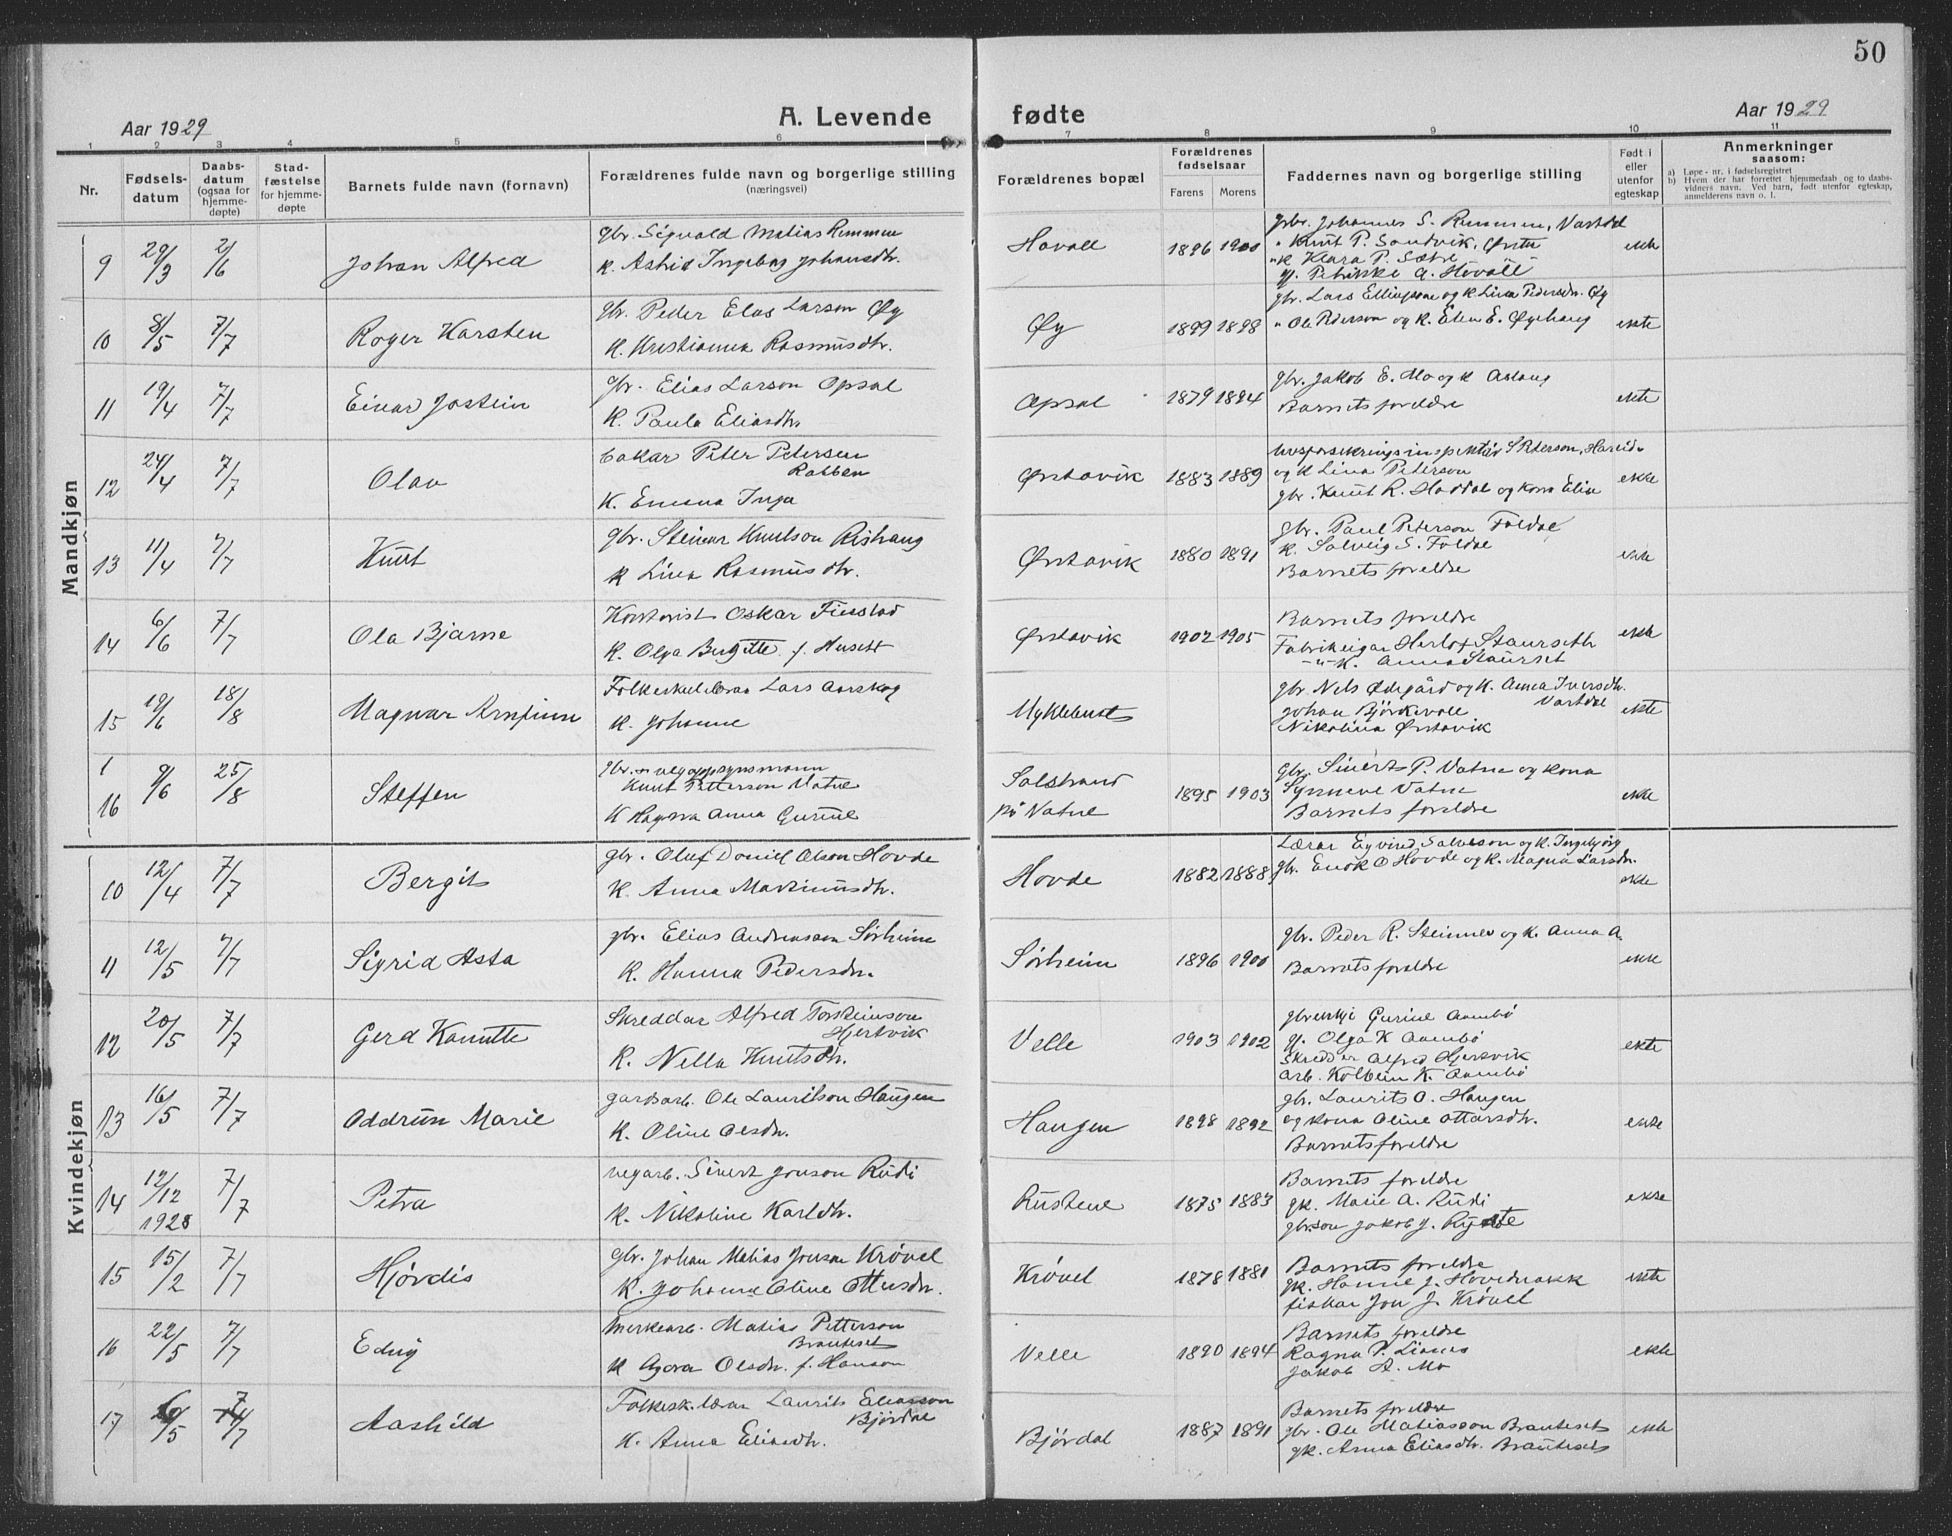 50
Aar 1929
A. Levende fødte
Aar 1929
1 2 3 4 5 6 7 8 9 10 11
Nr.
Fødsels-
datum
Daabs-
datum
(ogsaa for
hjemme-
døpte)
Stad-
fæstelse
for hjemme-
døpte
Barnets fulde navn (fornavn)
Forældrenes fulde navn og borgerlige stilling
(næringsvei)
Forældrenes bopæl
Forældrenes
fødselsaar
Farens Morens
Faddernes navn og borgerlige stilling
Født i
eller
utenfor
egteskap
Anmerkninger
saasom:
a) Løpe-nr. i fødselsregistret
b) Hvem der har forrettet hjemmedaab og to daabs-
vidners navn. Ved barn, født utenfor egteskap,
anmelderens navn o. l.
Mandkjøn
9 29/3 2/6 Johan Alfred
gbr. Sigvald Matias Remmen
k. Astrid Ingebrg Johansdtr.
Hovall 1896 1900
gbr. Johannes S. Remmen, Vartdal
" Knut P. Sandvik, Ørsta
"k Klara P. Sætre
gj. Petrikke A. Hovall
ekte
10 8/5 7/7 Roger Karsten
gbr. Peder Elas Larson Øy
k. Kristianna Rasmusdtr.
Øy 1899 1898
gbr. Lars Ellingsone og k. Lina Pedersdtr. Øy
" Ole Pederson og k. Elen E. Øyehaug
ekte
11 19/4 7/7 Einar Jostein
gbr. Elias Larson Opsal
k. Paula Eliasdtr.
Opsal 1879 1894
gbr. Jakob E. Mo og k Aslaug
Barnets foreldre
ekte
12 24/4 7/7 Olav
bakar Peter Petersen
Rabben
k. Emma Inga
Ørstavik 1883 1889
S Peterson, Hareid
og k Lina Peterson
gbr. Knut R. Hovdal og kona Elin
ekte
13 11/4 7/7 Knut
gbr. Steinar Knutson Rishaug
k Lina Rasmusdtr.
Ørstavik 1880 1891
gbr. Paul Peterson Foldal
k. Solveig S. Foldal
Barnets foreldre
ekte
14 6/6 7/7 Ola Bjarne
Kontorist Oskar Fivestad
k. Olga Bergitte f. Husett
Ørstavik 1902 1905
Barnets foreldre
Fabrikeigar Herlof Staurseth
-"- k. Anna Staurset
ekte
15 19/6 18/8 Magnar Arnfinn
Folkeskulelærar Lars Aarskog
k. Johanne
Myklebust
gbr. Nels Ødegård og k. Anna Iversdtr.
Vartdal
Johan Bjørkevoll
Nikolina Ørstavik
ekte
1
16 9/6 25/8 Steffen
gbr. og vegoppsynsmann
Knut Petterson Vatne
k Ragna Anna Gurine
Solstrand
på Vatne
1895 1903
gbr. Sivert P. Vatne og kona
Synneve Vatne
Barnets foreldre
ekte
Kvindekjøn
10 12/4 7/7 Bergit
gbr. Oluf Daniel Olson Hovde
k. Anna Martinusdtr.
Hovde 1882 1888
Lærar Eyvind Salveson og k. Ingebjørg
gbr. Enok O Hovde og k. Magna Larsdtr.
ekte
11 12/5 7/7 Sigrid Asta
gbr. Elias Andreasson Sørheim
k. Hanna Pedersdtr.
Sørheim 1896 1900
gbr. Peder R. Steinnes og k. Anna A.
Barnets foreldre
ekte
12 20/5 7/7 Gerd Kamitte
Skreddar Alfred Torsteinson
Hjertvik
k. Nella Knutsdtr.
Velle 1903 1902
Gurine Aambø
gj. Olga K Aambø
Skredder Alfred Hjertvik
arb. Kolbein K. Aambø
ekte
13 16/5 7/7 Oddrun Marie
gardsarb. Ole Lauritson Haugen
k. Oline Olsdtr.
Haugen 1898 1892
gbr. Laurits O. Haugen
og kona Oline Ottarsdtr.
Barnets foreldre
ekte
14 12/12 1928 7/7 Petra
vegarb. Sivert Jonson Rudi
k. Nikoline Karldtr.
Rustene 1875 1883
Barnets foreldre
gk. Marie A. Rudi
gbrson Jakob J.
ekte
15 15/2 7/7 Hjørdis
gbr. Johan Matias Jonson Krøvel
k. Johanna Oline Ottersdtr.
Krøvel 1878 1881
Barnets foreldre
gk. Hanne J. Hovdenakk
fiskar Jon J. Krøvel
ekte
16 22/5 7/7 Edny
Merkearb. Matias Petterson
Brauteset
k Agora Olsdtr. f. Hanson
Velle 1890 1894
Barnets foreldre
Ragna P. Lianes
Jakob A. Mo
ekte
17 6/5 7/7 Aashild
Folkesk.lærar Laurits Eliasson
Bjørdal
k. Anna Eliasdtr.
Bjørdal 1887 1891
Barnets foreldre
gbr. Ole Matiasson Brauteset
gk. Anna Eliasdtr. Brauteset
ekte